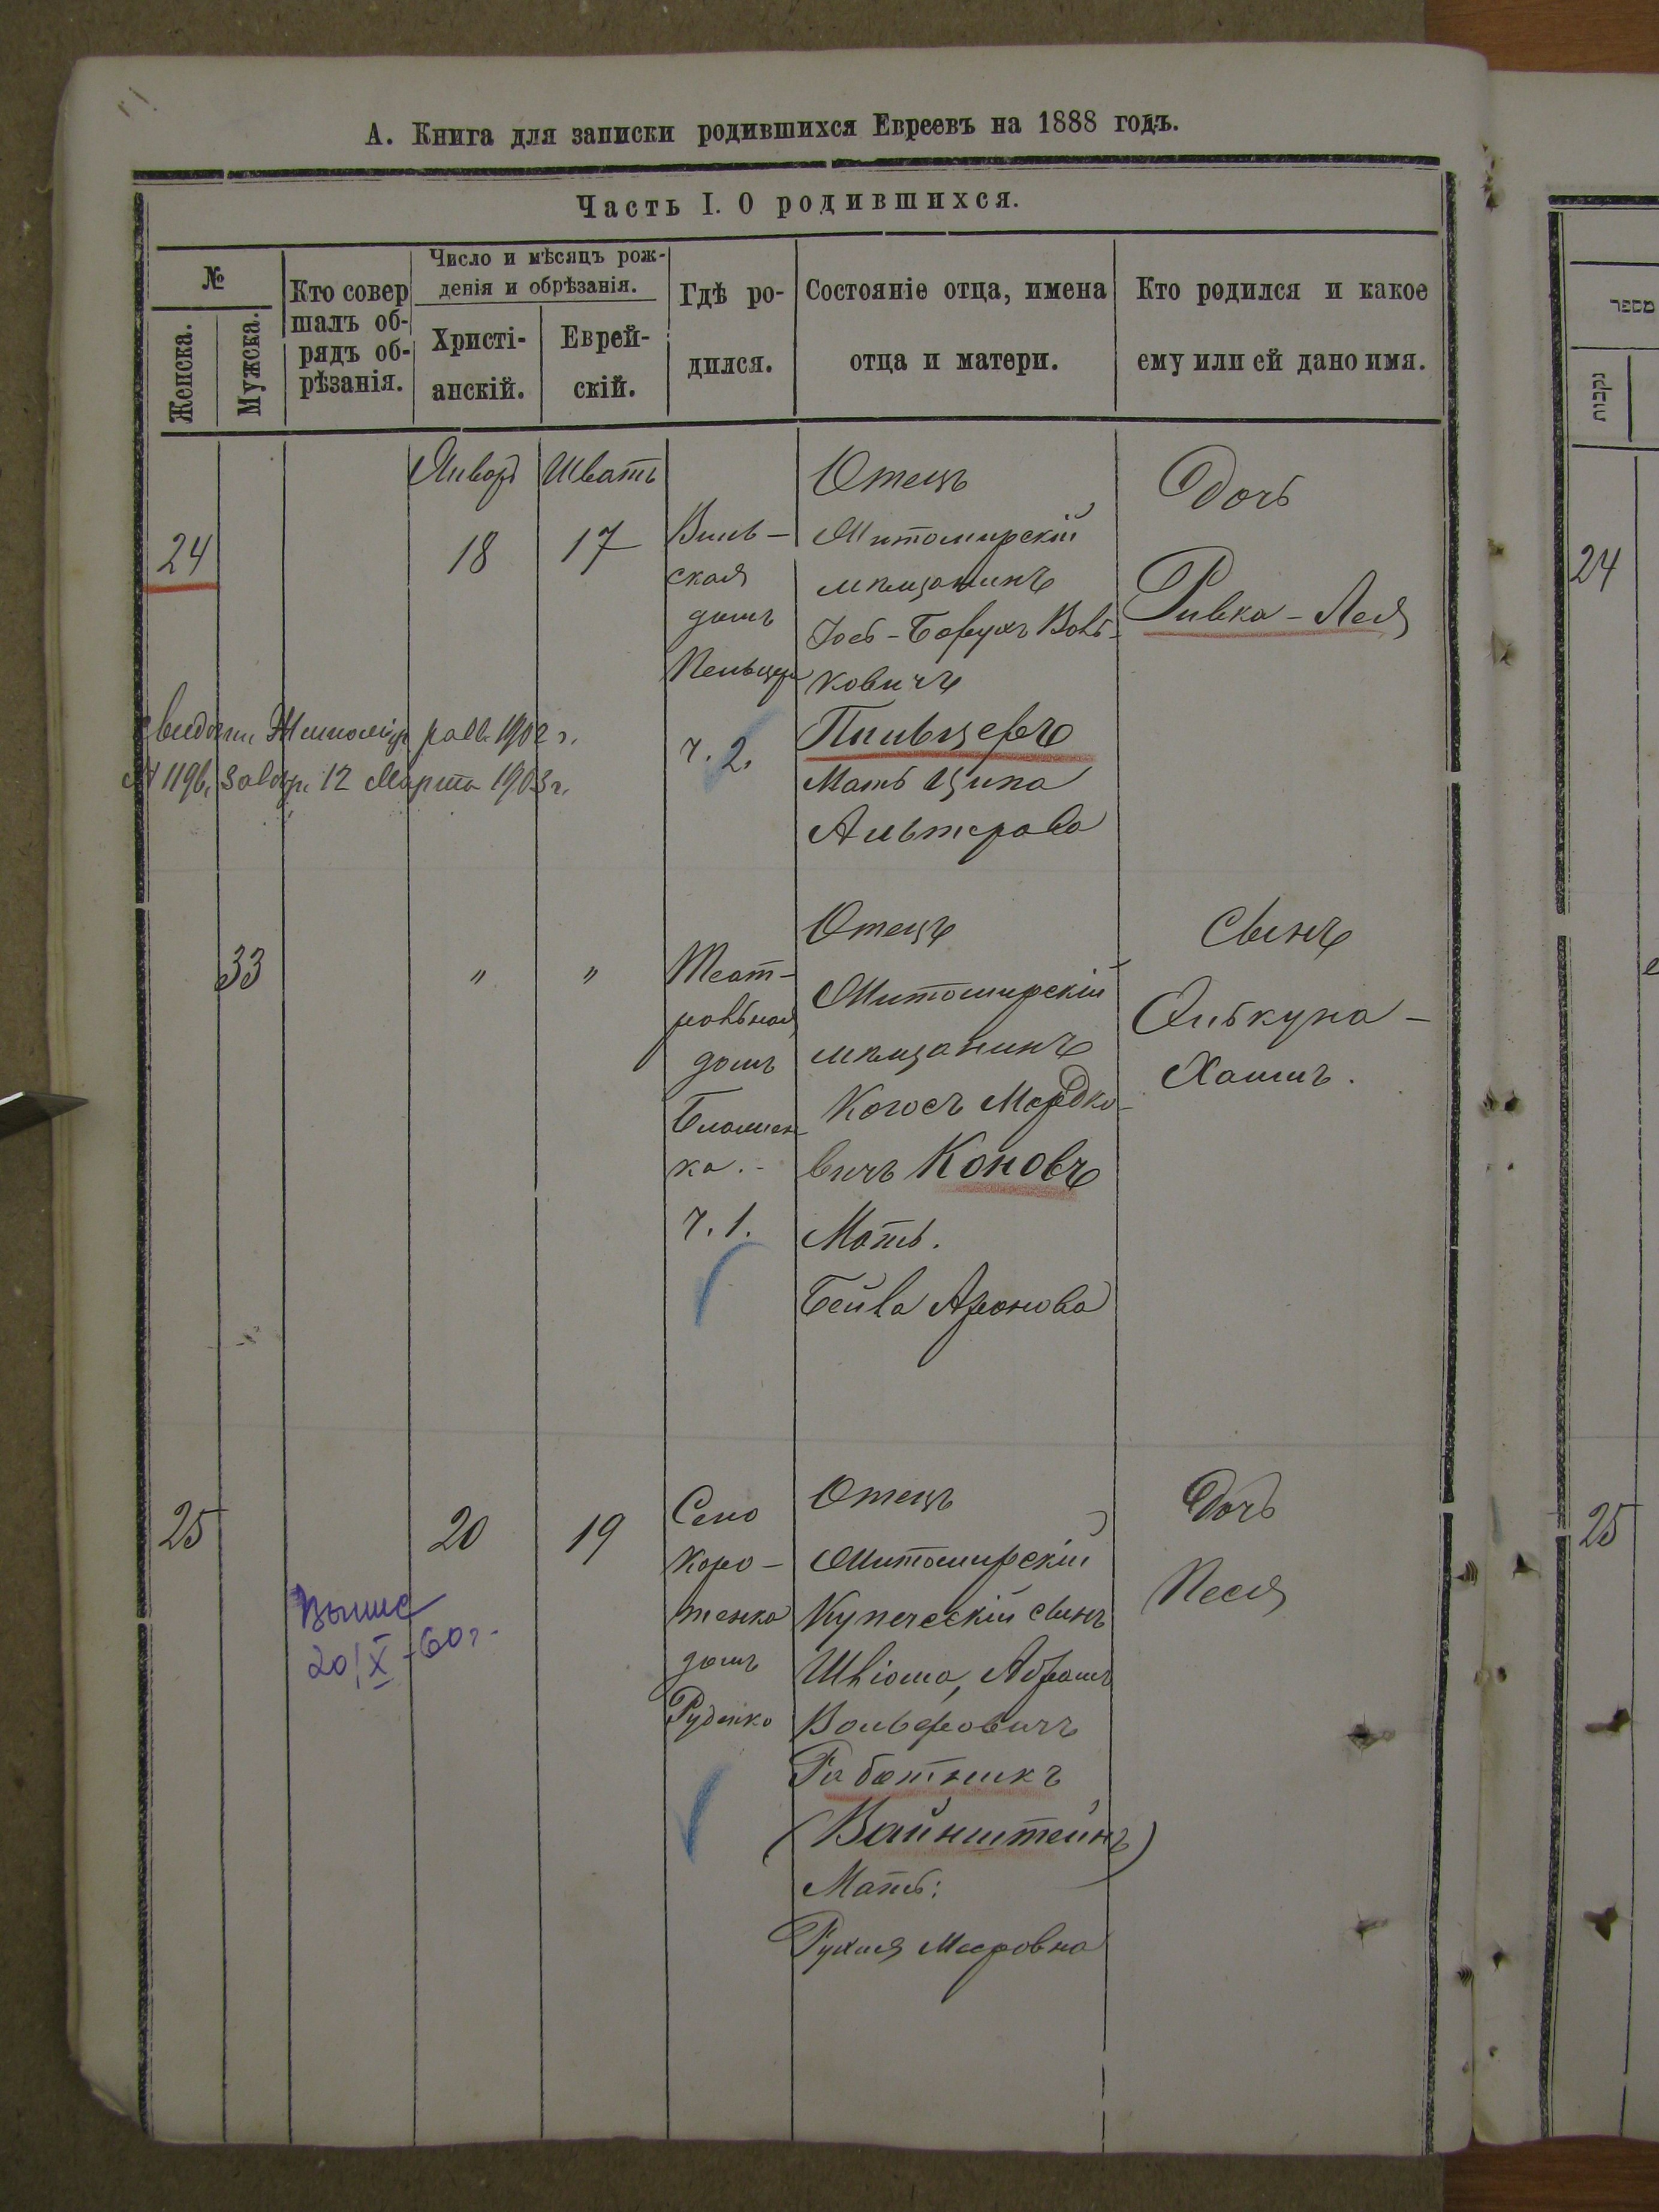 А. Книга для записки родившихся Евреевъ на 1888 годъ.
Часть I. О родившихся.
№
Женска.
Мужска.
Кто совер
шалъ об-
рядъ об-
рѣзанія.
Число и мѣсяцъ рож-
денія и обрѣзанія.
Христі-
анскій.
Еврей-
скій.
Гдѣ ро-
дился.
Состояніе отца, имена
отца и матери.
Кто родился и какое
ему или ей дано имя.
24
Январь
18
Шватъ
17
Виль-
ская
домъ
Пельцера
ч. 2.
Отецъ
Житомирскій
мѣщанинъ
Іось-Борухъ Воль-
ковичъ
Пильцеръ
Мать Ципа
Альтерова
Дочь
Ривка-Лея
Житомір. равв. 1902 г.
№ 1196, 12 Марта 1903 г.
33
"
"
Театр-
ральная
домъ
ка.-
ч. 1.
Отецъ
Житомирскій
мѣщанинъ
Когосъ Мордко-
вичъ Коновъ
Мать.
Бейла Аронова
Сынъ
Элькуна-
Хаимъ.
25
20
19
Сено
коро-
тенка
домъ
Руденко
Отецъ
Житомирскій
Купеческій сынъ
Шліома, Абрамъ
Вольфовичъ
Работникъ
(Вайнштейнъ)
Мать:
Рухля Мееровна
Дочь
Песя
20/X-60г.
מספר
נקבות
24
25